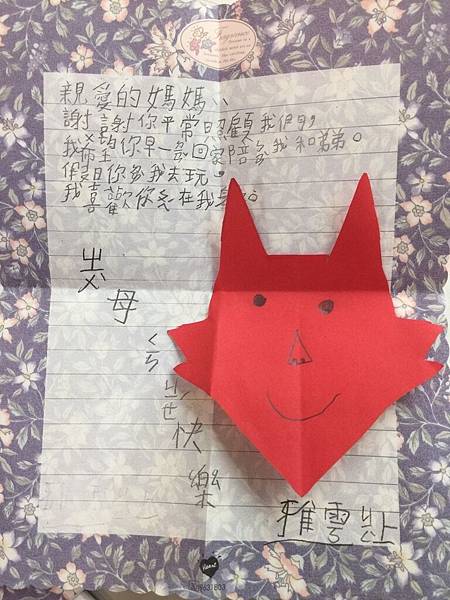 親愛的媽媽：
謝謝你平常照顧我們，
我希望你早一回家陪我和弟弟。
假日你我去玩。
我喜歡你在我身
ㄓㄨˋ
母
ㄑㄧㄣ
ㄐㄧㄝˊ
快
樂
雅雲